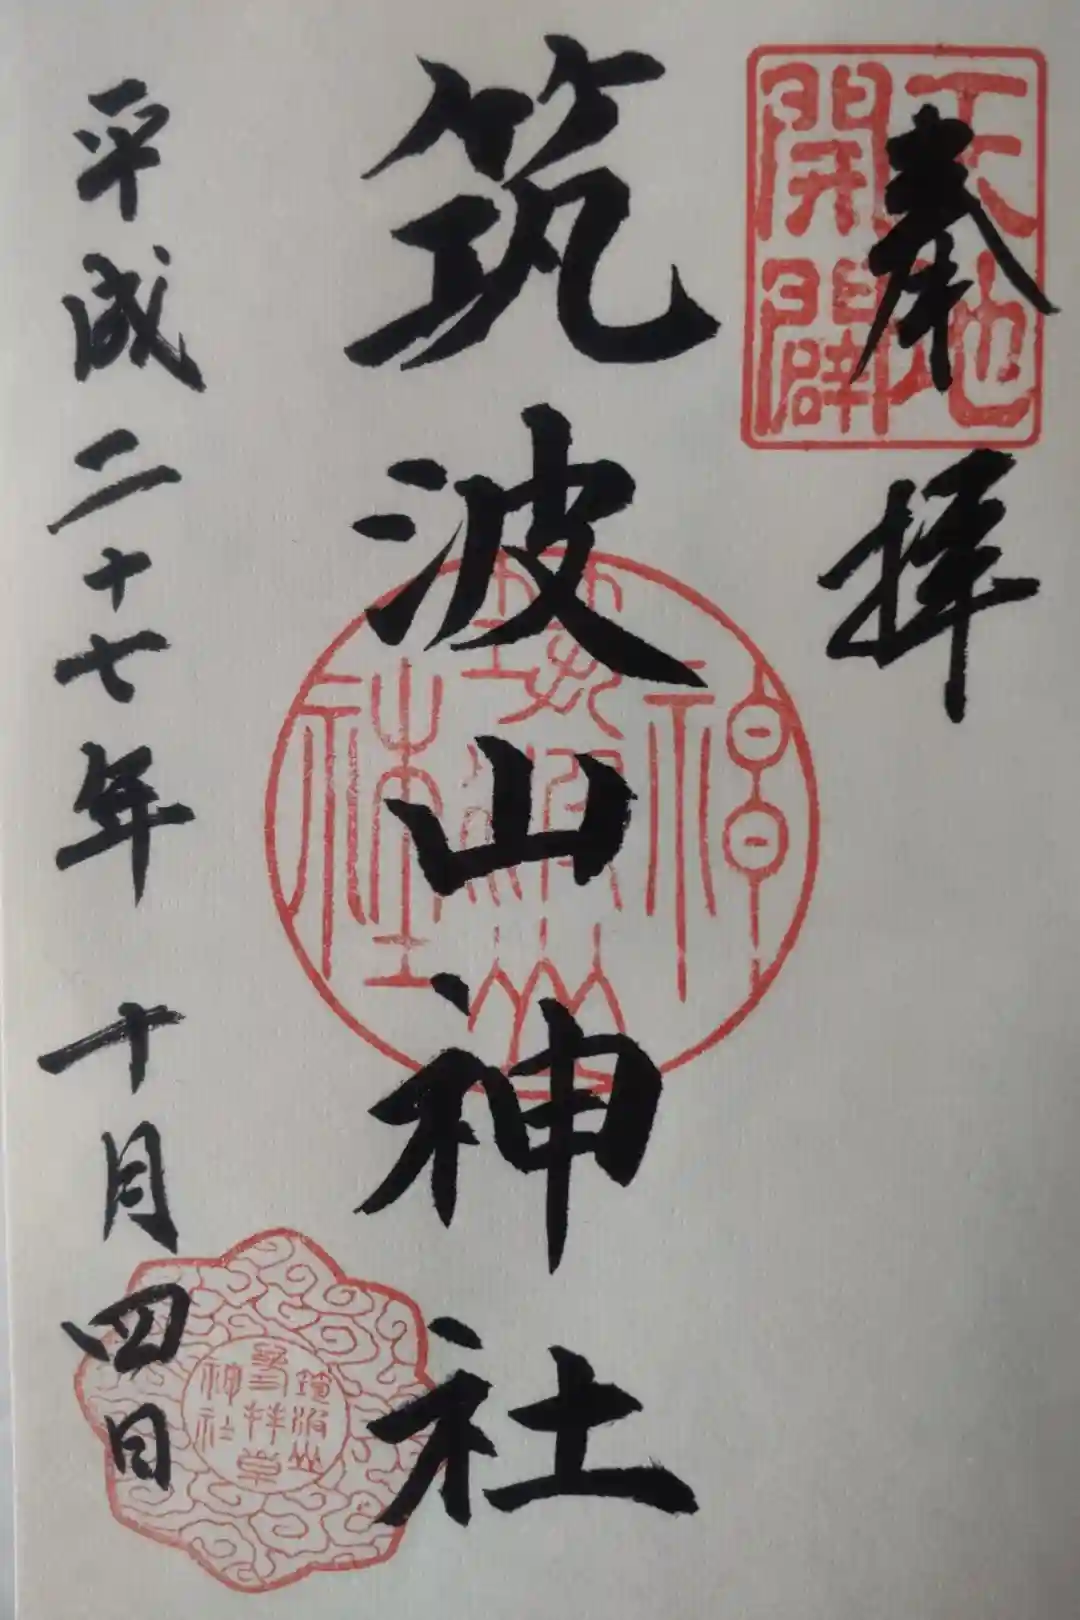 奉拝
天地
開闢
筑波山神社
平成二十七年十月四日
筑波山
参拝章
神社